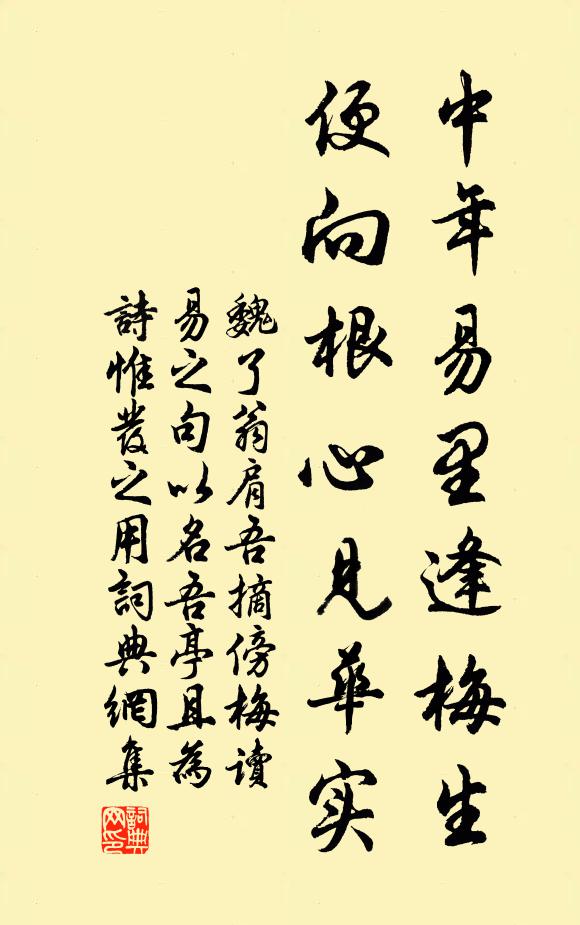 中年易里逢梅生
便向根心見華实
魏了翁肩吾摘傍梅读
易之句以名吾亭且為
詩惟發之用詞典網集
詞典网印